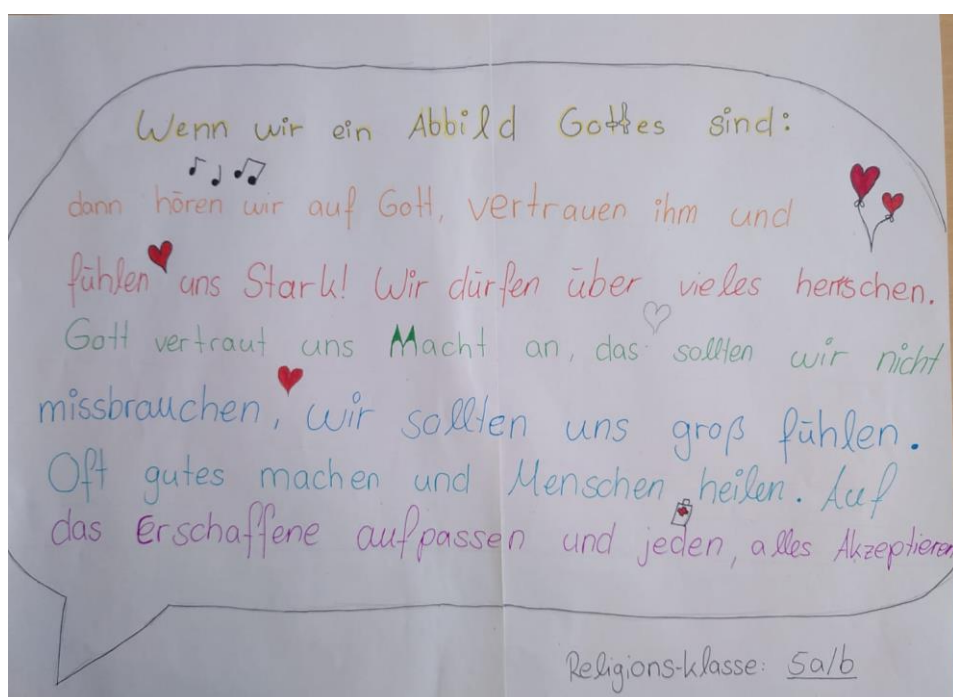 Wenn wir ein Abbild Gottes sind:
dann hören wir auf Gott, vertrauen ihm und
fühlen uns Stark! Wir dürfen über vieles herrschen.
Gott vertraut uns Macht an, das sollten wir nicht
missbrauchen, wir sollten uns groß fühlen.
Oft gutes machen und Menschen heilen. Auf
das Erschaffene aufpassen und jeden, alles Akzeptieren
Religions-klasse: 5a/b